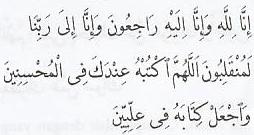 إِنَّا لِلَّهِ وَإِنَّا إِلَيْهِ رَاجِعُونَ وَإِنَّا إِلَى رَبِّنَا
لَمُنْقَلِبُونَ اَللَّهُمَّ اكْتُبْهُ عِنْدَكَ فِى الْمُحْسِنِينَ
وَاجْعَلْ كِتَابَهُ فِى عِلِّيِّينَ